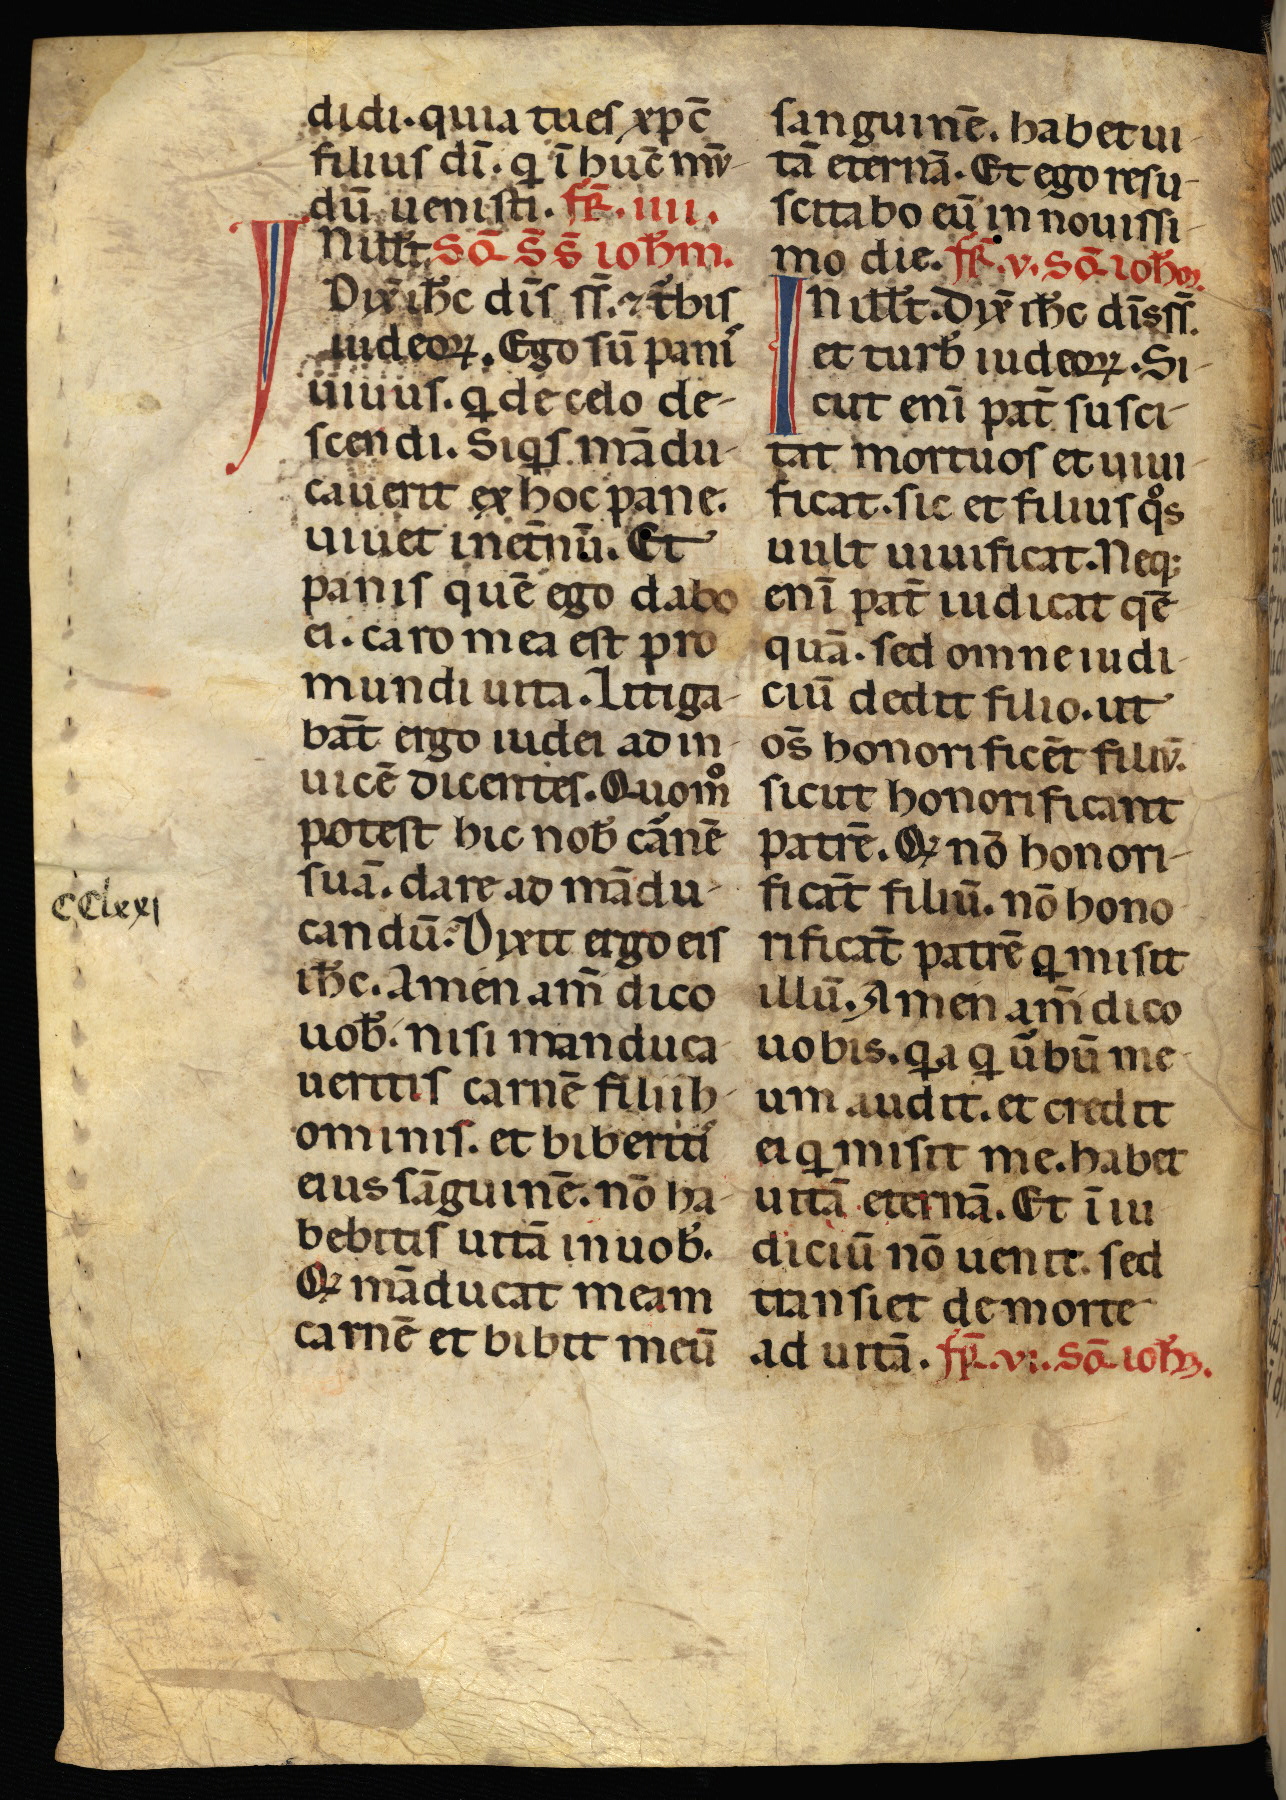 didi. quia tu es xp̄c
filius dī. q̄ ī hūc mū-
dū uenisti. fr̄. iiii.
N ill̄t. Sc̄d̄ S̄S̄ ioh̄m.
Dix̄ ih̄c dīs ss̄. ⁊ t̄bis
iudeoꝝ. Ego sū pani
uiuus. q̄ de celo de-
scendi. Siqͥs mādu-
cauerit ex hoc pane.
uiuet inet̄nū. Et
panis quē ego dabo
ei. caro mea est pro
mundi uita. Litiga-
bāt ergo iudei ad in-
uicē dicentes. Quom̊
potest hic nob̄ carnē
suā. dare ad mādu-
candū. Dixit ergo eis
ih̄c. Amen am̄ dico
uob̄. nisi manduca-
ueritis carnē filii h-
ominis. et biberiti
eius sāguinē. nō ha-
bebitis uitā in uob̄.
Qͥ māducat meam
carnē et bibit meū
CClxxi
sanguinē. habet ui-
tā eternā. Et ego resu-
scitabo eū in nouissi-
mo die. fr̄. v. Sc̄d̄ ioh̄m.
IN ill̄t. Dix̄ ih̄c dīs ss̄.
et turb̄ iudeoꝝ. Si-
cut enī pat̄ susci-
tat mortuos et uiui-
ficat. sic et filius qͦs
uult uiuificat. Neq;
enī pat̄ iudicat qē
quā. sed omne iudi-
ciū dedit filio. ut
om̄s honorificēt filiū.
sicut honorificant
patrē. Qͥ nō honori-
ficat̄ filiū. nō hono
rificat̄ patrē q̄ misit
illū. Amen am̄ dico
uobis. q̄a q̄ ūbū me-
um audit. et credit
ei q̄ misit me. habet
uitā eternā. Et ī iu
diciū nō uenit. sed
transiet de morte
ad uitā. fr̄. vi. Sc̄d̄ ioh̄m.